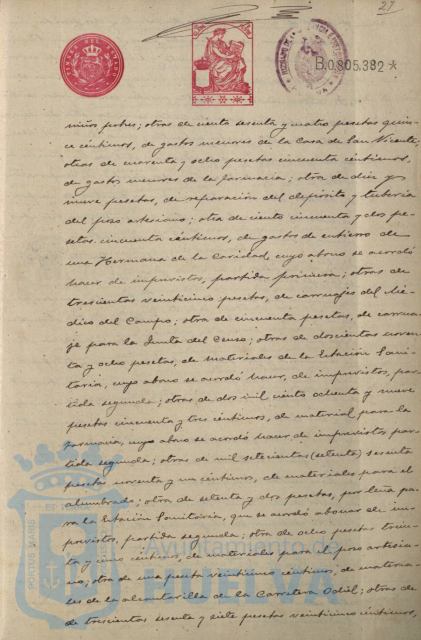 27
B.0.805.382 *
niños pobres; otras de ciento sesenta y cuatro pesetas quince
céntimos, de gastos menores de la Casa de San Vicente;
otras de cuarenta y ocho pesetas cincuenta céntimos,
de gastos menores de la farmacia; otra de diez y
nueve pesetas, de reparación del depósito y tubería
del pozo artesiano; otra de ciento cincuenta y dos pe-
setas cincuenta céntimos, de gastos de entierro de
una Hermana de la Caridad, cuyo abono se acordó
hacer de imprevistos, partida primera; otras de
trescientas veinticinco pesetas, de carruajes del Mé-
dico del Campo; otra de cincuenta pesetas, de carrua-
je para la Junta del Censo; otras de doscientas noven-
ta y ocho pesetas, de materiales de la Estación Sani-
taria, cuyo abono se acordó hacer, de imprevistos, par-
tida segunda; otras de dos mil ciento ochenta y nueve
pesetas cincuenta y tres céntimos, de material para la
farmacia, cuyo abono se acordó hacer de imprevistos par-
tida segunda; otras de mil setecientas (setenta) sesenta
pesetas noventa y un céntimos, de materiales para el
alumbrado; otra de setenta y dos pesetas, por leña pa-
ra la Estación Sanitaria, que se acordó abonar de im-
previstos, partida segunda; otra de ocho pesetas trein-
ta y cinco céntimos, de materiales para el pozo artesia-
no; otra de una peseta veinticinco céntimos, de materia-
les de la alcantarilla de la Carretera Odiel; otras de
de trescientas sesenta y siete pesetas veinticinco céntimos,
PORTUS MARIS
Ayuntamiento de
HUELVA